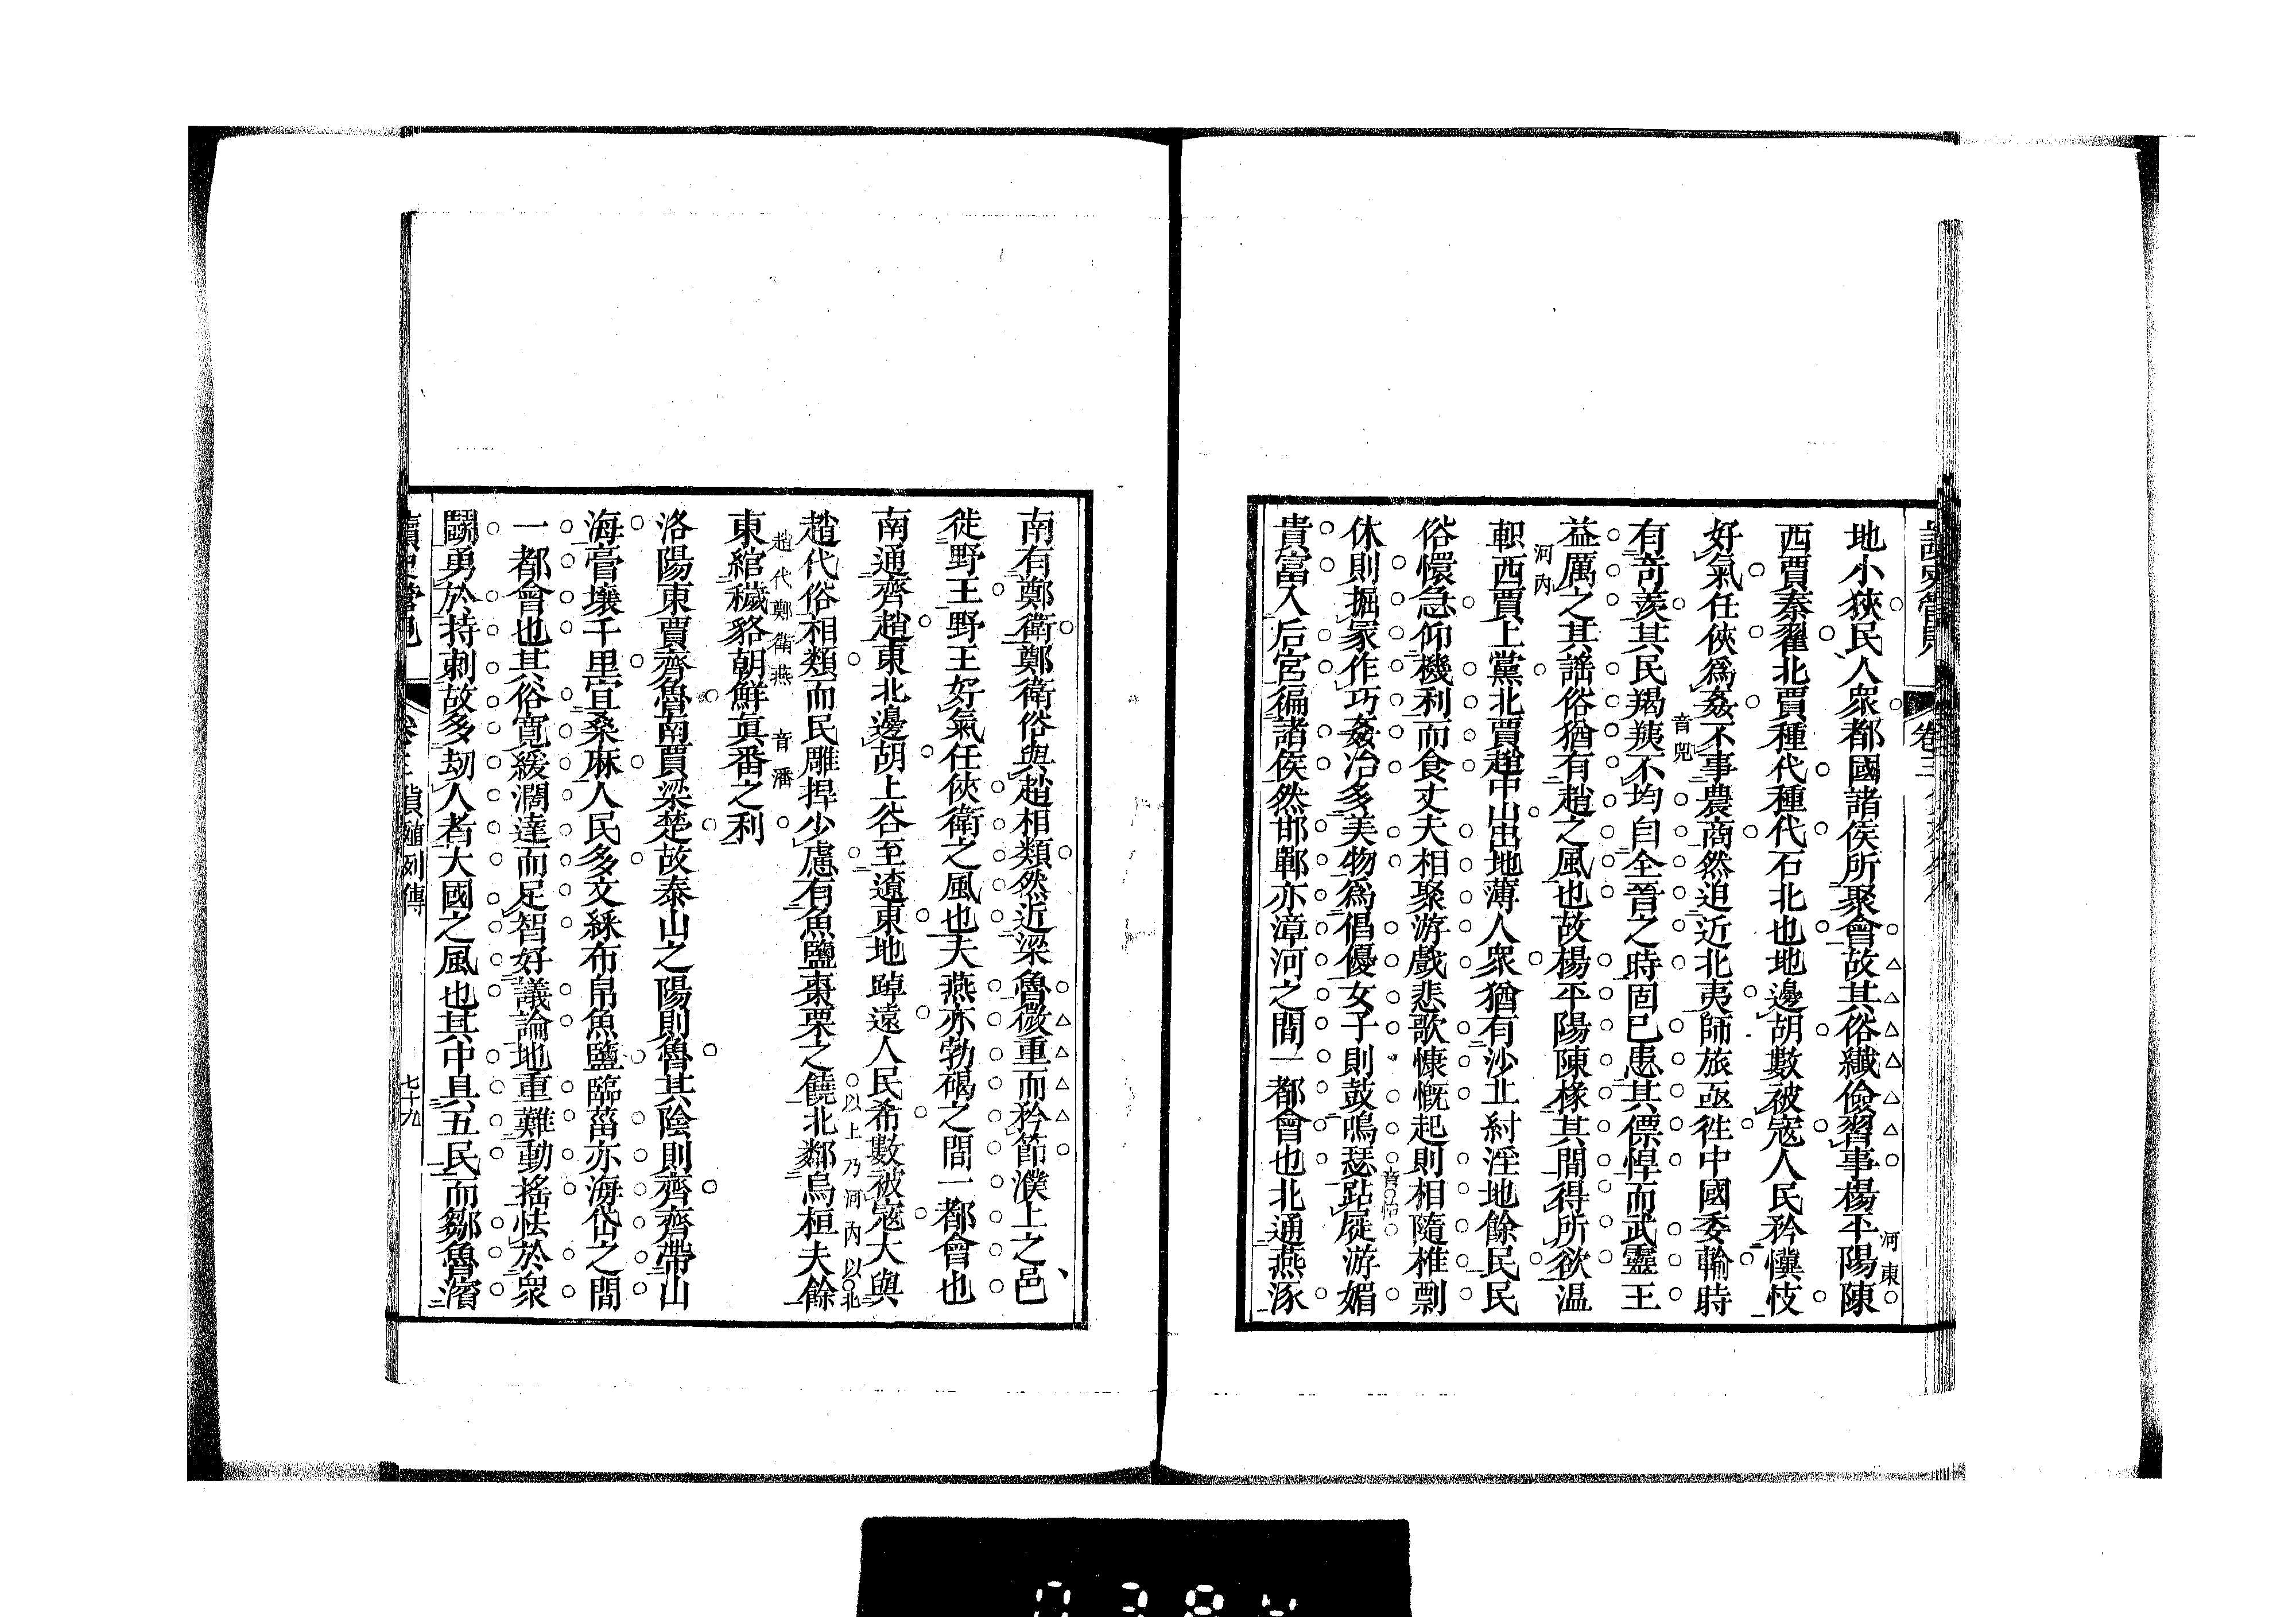 地小狹民人衆都國諸侯所聚會故其俗纖儉習事楊平陽陳
河東
西賈秦翟北賈種代種代石北也地邊胡數被寇人民矜懻忮
好氣任俠爲姦不事農商然迫近北夷師旅亟徃中國委輸時
音兕
有竒羨其民羯羠不均自全晉之時固已患其僄悍而武靈王
益厲之其謡俗猶有趙之風也故楊平陽陳掾其間得所欲温
河内
軹西賈上黨北賈趙中山中山地薄人衆猶有沙丘紂淫地餘民民
俗懁急仰機利而食丈夫相聚游戲悲歌慷慨起則相隨椎剽
休則掘冢作巧姦冶多美物爲倡優女子則鼓鳴瑟跕屣游媚
貴富入后宮徧諸侯然邯鄲亦漳河之間一都會也北通燕涿
南有鄭衛鄭衛俗與趙相類然近梁魯微重而矜節濮上之邑
徙野王野王好氣任俠衛之風也夫燕亦勃碣之間一都會也
南通齊趙東北邊胡上谷至遼東地踔遠人民希數被寇大與
以上乃河内以北
趙代俗相類而民雕捍少慮有魚鹽棗栗之饒北鄰烏桓夫餘
趙代鄭衛燕
音潘
東綰穢貉朝鮮眞番之利
洛陽東賈齊魯南賈梁楚故泰山之陽則魯其陰則齊齊帶山
海膏壤千里宜桑麻人民多文綵布帛魚鹽臨菑亦海岱之間
一都會也其俗寛緩濶達而足智好議論地重難動搖怯於衆
鬭勇於持刺故多刼人者大國之風也其中具五民而鄒魯濱
卷三
列傳
七十九